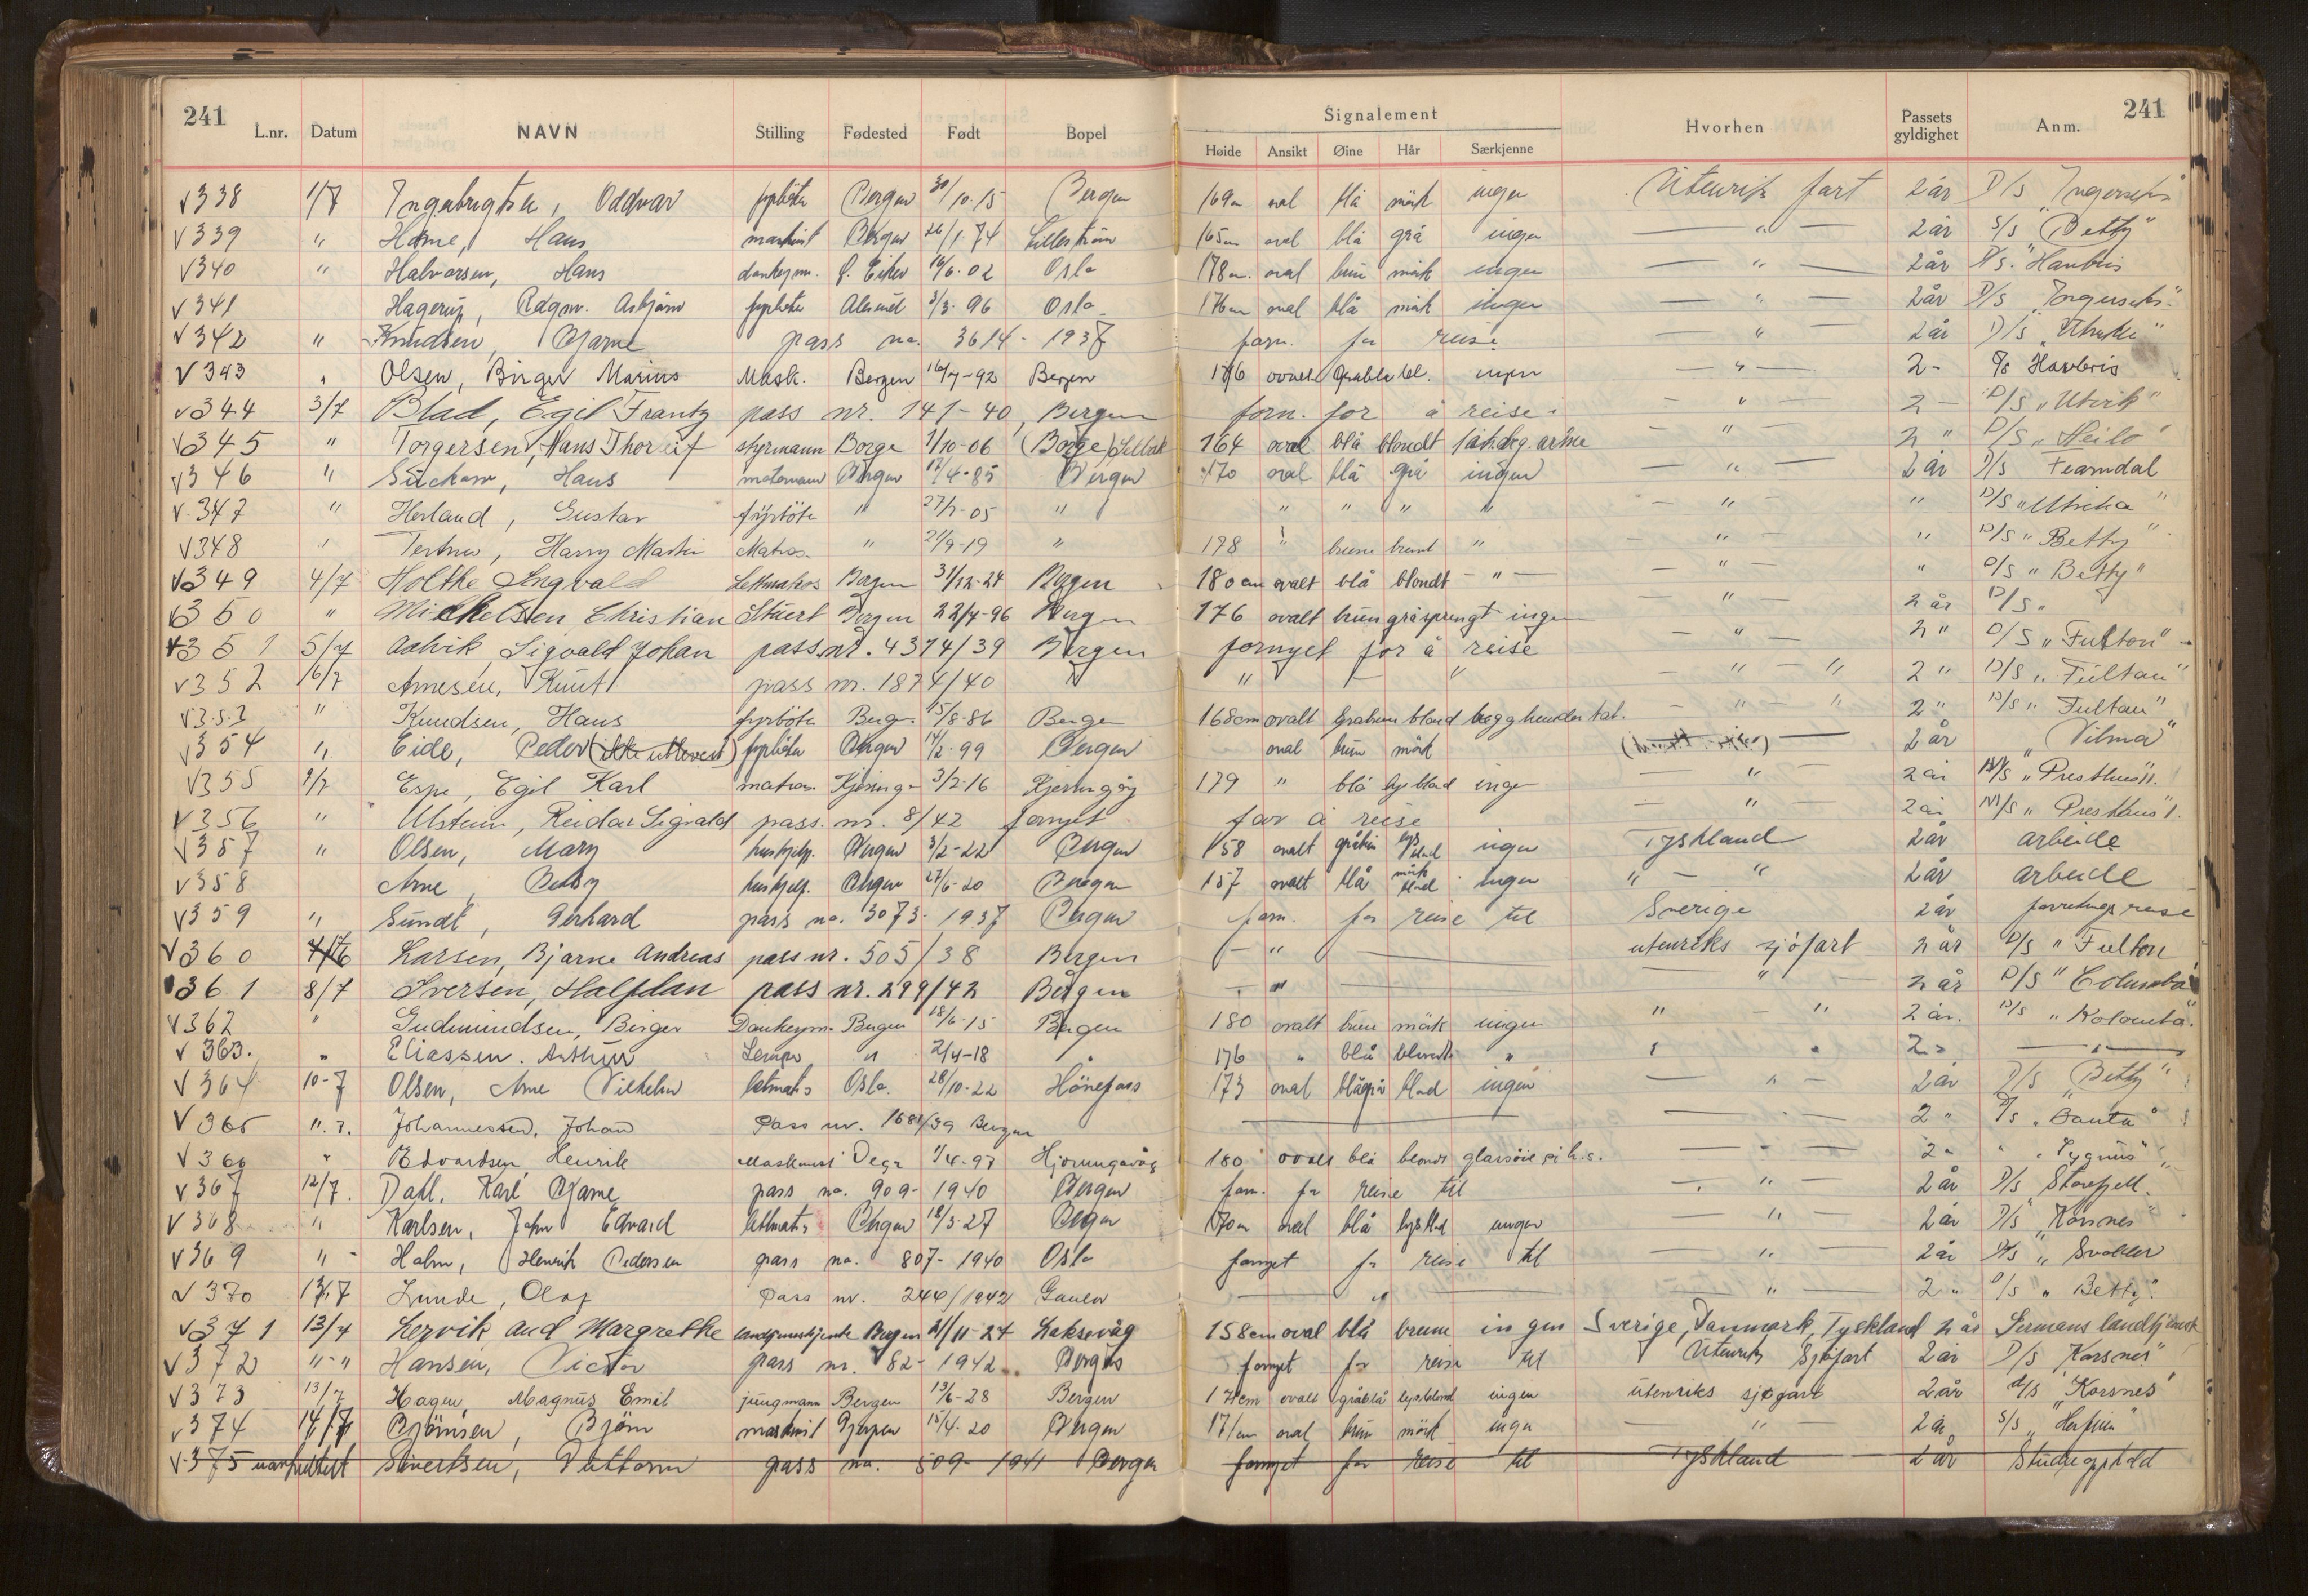 241 Signalement 241
L.nr. Datum NAVN Stilling Fødested Født Bopel Høide Ansikt Øine Hår Særkjenne Hvorhen Passets gyldighet Anm.
V338 1/7 Ingebrigtsen, Oddvar fyrböter Bergen 30/10-15 Bergen 169cm oval blå mörk ingen Utenriks fart 2 år D/S
V339 " Hans maskinist Bergen 26/1-74 Lilleström 165cm oval blå grå ingen — " — 2 år S/S "Betty"
V340 " Halvorsen, Hans donkeym. 16/6-02 Oslo 178cm. oval brun mörk ingen — " — 2 år D/S. "Havbris
V341 Hagerup, Ragnv. Asbjörn fyrböter Ålesund 3/3-96 Oslo 176cm oval blå mörk ingen — " — 2 år D/S
V342 " Knudsen, Bjarne pass no. 3614-1937 forn. for reise — " — 2 år D/S
V343 " Olsen, Birger Marius Mask. Bergen 16/7-92 Bergen 176 ovalt bl. ingen — " — 2- D/S Havbris
V344 3/7 Blad, Egil Frantz pass nr. 141-40, Bergen forn. for å reise. — " — 2 — D/S "Utvik"
V345 " Torgersen, Hans Thorleif styrmann Borge 1/10-06 (Borge) 164 oval blå blondt — " — 2 " D/S "Heilo"
V346 " Hans Bergen 4-85 Bergen 170 oval blå grå ingen — " — 2 år D/S
V347 " Herland, Gustav fyrböter " 27/7-05 " " " " " " — " — " D/S
V348 " Harry Martin Matros. " 21/9-19 " 178 " brune brunt " — " — " D/S "Betty"
V349 4/7 Holthe Ingvald Lettmatros Bergen 31/12-24 Bergen 180cm ovalt blå blondt — " — — " — " D/S "Betty"
V350 " Michelsen Christian Stuert Bergen 22/7-96 Bergen 176 ovalt brun gråsprengt ingen — " — 2 år D/S.
V351 5/7 Aalvik, Sigvald Johan pass nr. 4374/39 Bergen fornyet for å reise — " — 2 " D/S "Fulton"
V352 6/7 Arnesen, Knut pass nr. 1874/40 " " — " — " — " 2 " D/S "Fulton"
V353 " Knudsen, Hans fyrböter Bergen 15/8-86 Bergen 168cm ovalt gråbrun blond begg hender tat. — " — " 2 " D/S "Fulton"
V354 " Eide, Peder (ikke utlevert) fyrböter Bergen 14/2-99 Bergen oval brun mörk — 2 år "Vilma"
V355 7/7 Espe, Egil Karl matros 3/2-16 Kjerringöy 179 " blå lys blond ingen — " — 2 år M/S "Presthus".
V356 " Ulstein, Reidar Sigvald pass. nr. 8/42 fornyet for å reise — " — 2 år M/S "Presthus".
V357 " Olsen, Mary hushjelp. Bergen 3/2-22 Bergen 158 ovalt gråblå lys blond ingen Tyskland 2 år arbeide
V358 Arne, Betsy hushjelp. Bergen 27/6-20 Bergen 157 ovalt blå mörk blond ingen " — " 2 år arbeide
V359 " Sundt, Gerhard pass no. 3073-1937 Bergen forn. for reise til Sverige 2 år forretnings reise
V360 Larsen, Bjarne Andreas pass nr. 505/38 Bergen — " — utenriks sjöfart 2 år D/S "Fulton
361 8/7 Iversen, Halfdan pass nr. 299/42 Bergen — " — — " — 2 år D/S "Columba
V362 " Gudmundsen, Birger Donkeym. Bergen 18/6-15 Bergen 180 ovalt brune mörk ingen " — " 2 år. D/S
V363. " Eliassen. Arthur Lemper " 2/4-18 " 176 " blå blondt " " " 2 " — " —
V364 10-7 Olsen, Arne Vilhelm lettmatros Oslo. 28/10-22 Hönefoss 173 oval blågrå blond ingen — " — 2 år D/S "Betty"
V365 11.7. Johannessen, Johan Pass nr. 1681/39 Bergen — — " — 2 " D/S "Banta"
V366 " Edvardsen, Henrik Maskinist 1/4-97 Hjörungavåg 180 ovalt blå blondt glassöie på h.s. — " — 2 "
V367 12/7. Dahl, Karl Bjarne pass no. 909-1940 Bergen forn. for reise til — " — 2 år D/S Storefjell.
V368 " Karlsen, John Edvard lettmatros Bergen 18/3-27 Bergen 170cm oval blå lys blond ingen — " — 2 år D/S "Korsnes"
V369 " Holm, Henrik Pedersen pass no. 807-1940 Oslo fornyet for reise til — " — 2 år D/S "Svolder
V370 13/7 Lunde, Olaf Pass nr. 244/1942 — " — — " — 2 " D/S "Betty".
V371 13/7 Lervik Aud Margrethe Bergen 21/11-24 Laksevåg 158cm oval blå brune ingen Sverige, Danmark, Tyskland 2 år Germans landtjeneste
V372 "-" Hansen, Victor pass nr. 82-1942. Bergen fornyet for reise til Utenriks Sjöfart 2 år D/S "Korsnes"
V373 13/7 Hagen, Magnus Emil jungmann Bergen 13/6-28 Bergen ovalt gråblå lysblond ingen utenriks sjöfart 2 år D/S "Korsnes"
V374 14/7 Björnsen, Björn maskinist Gjerpen 15/4-20 Bergen 171cm oval brun mörk ingen — " — 2 år S/S
V375 uanfektet Sivertsen, Guttorm pass no. 509-1941 Bergen fornyet for reise til Tyskland 2 år Studieopphold